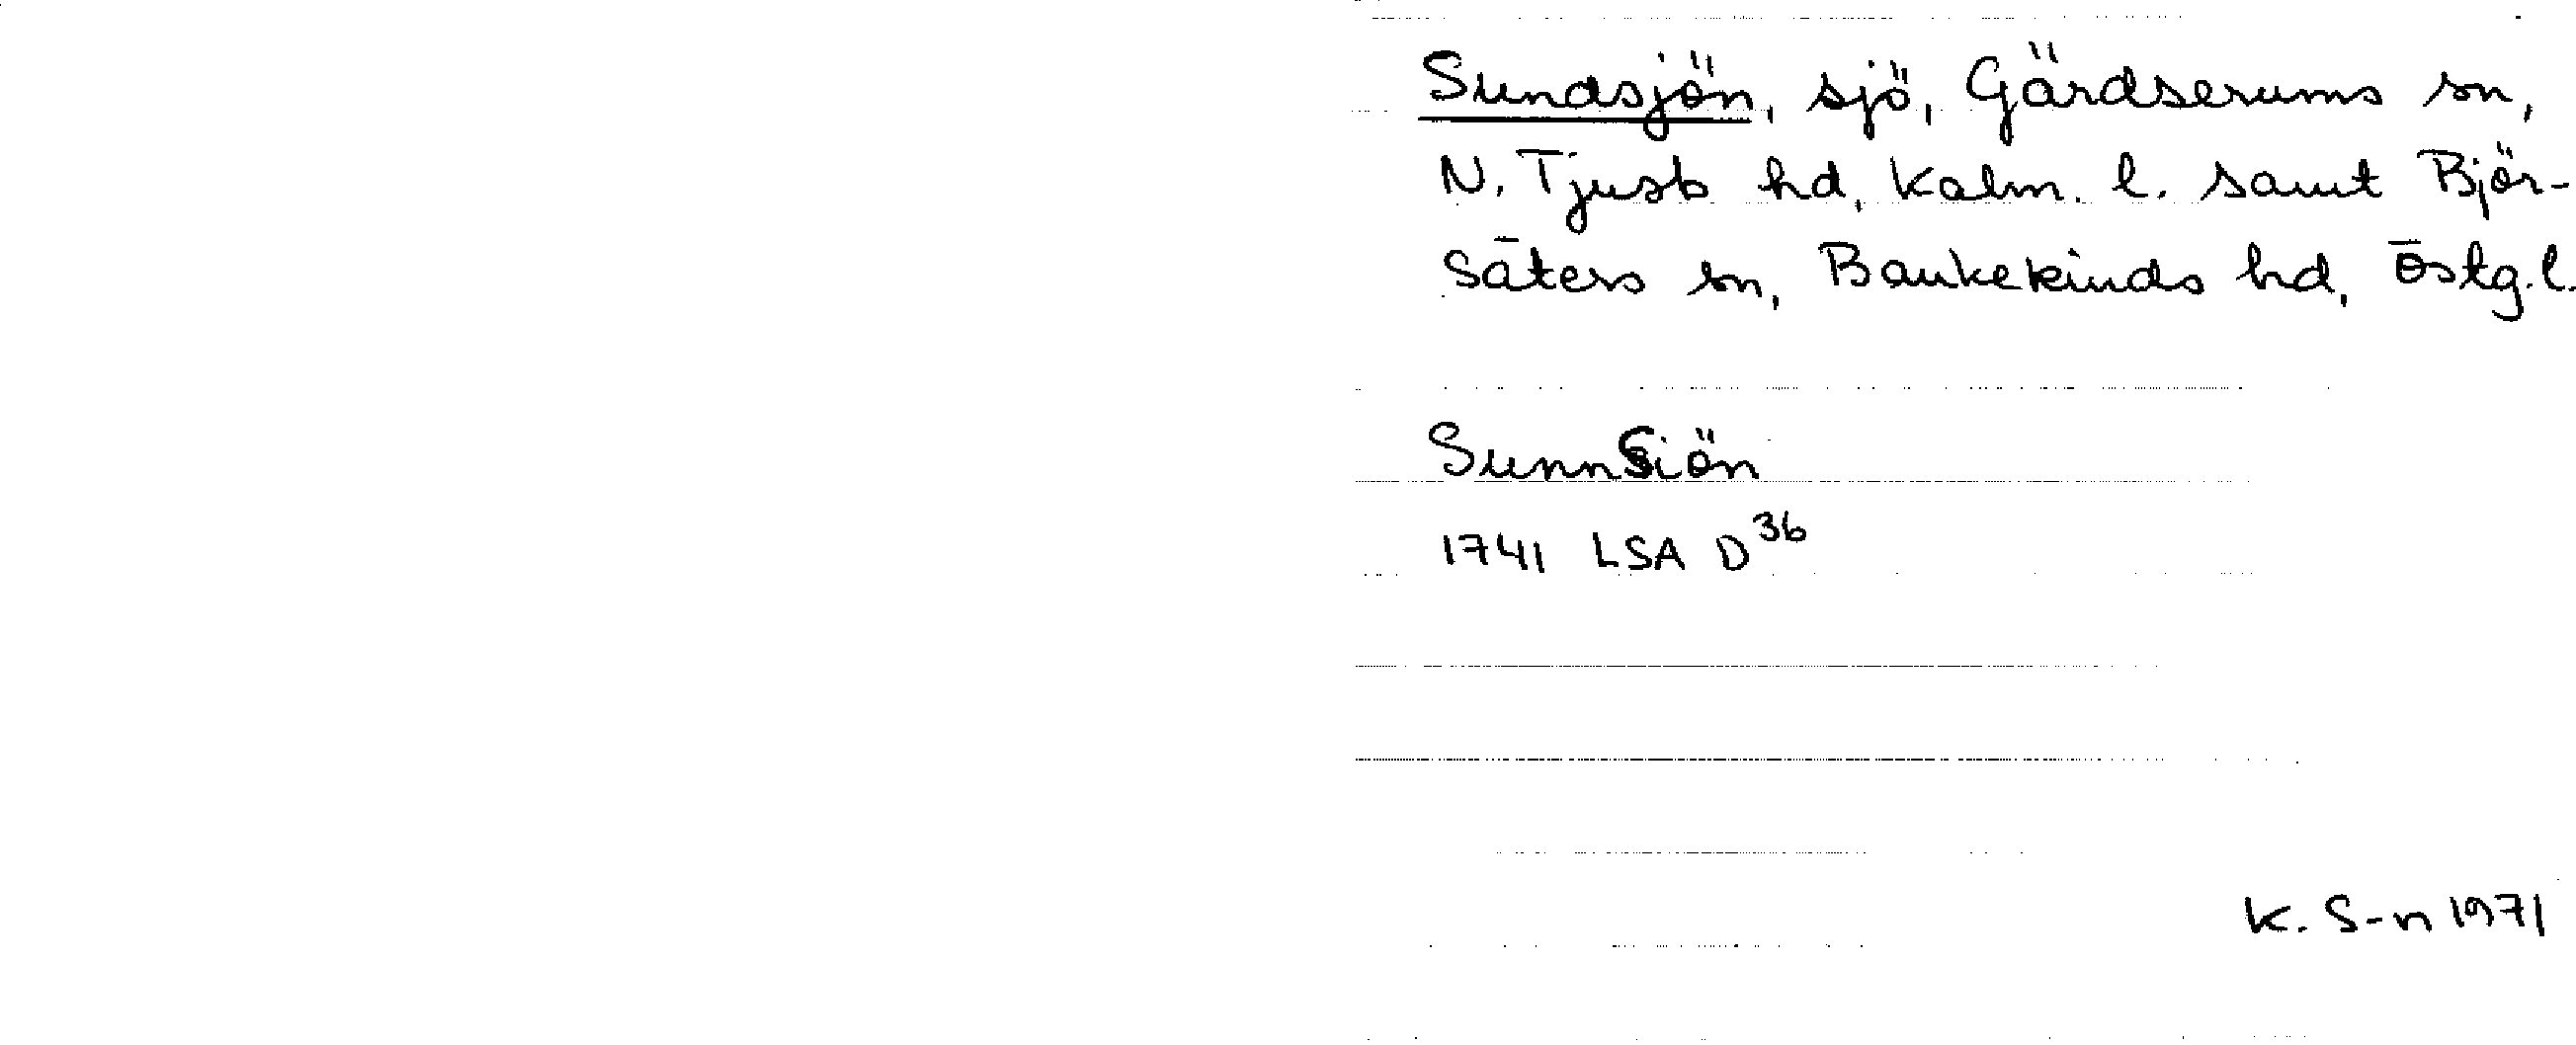 Sundsjön, sjö, Gärdserums sn,
N. Tjusts hd, Kalm. l. samt Björ-
säters sn, Bankekinds hd, Östg. l.
SunnSiön
1741 LSA D36
K. S-n 1971